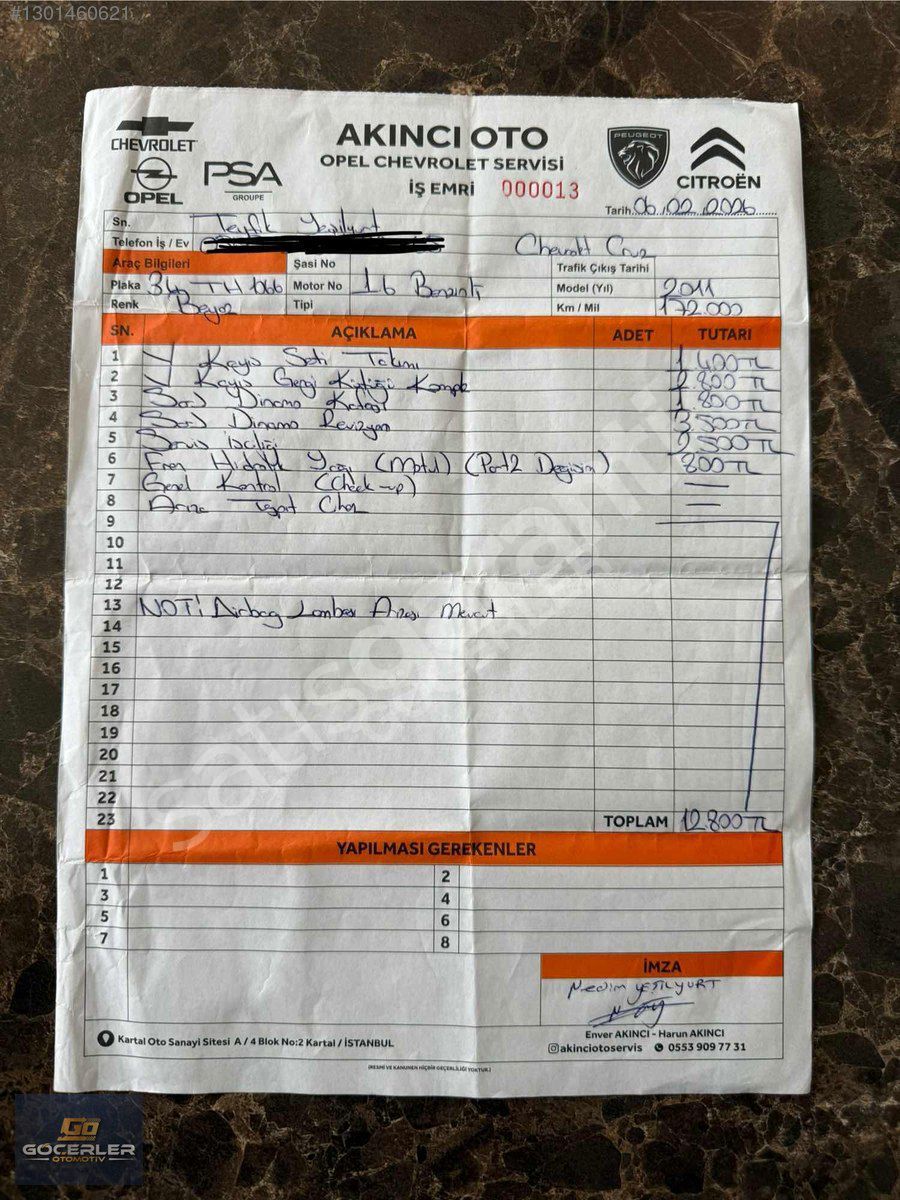 #1301460621
CHEVROLET
OPEL
PSA
GROUPE
AKINCI OTO
OPEL CHEVROLET SERVİSİ
İŞ EMRİ 000013
PEUGEOT
CITROËN
Tarih 06.02.2026
Sn. Tevfik Yeşilyurt
Telefon İş / Ev Chevrolet Cruz
Araç Bilgileri Şasi No Trafik Çıkış Tarihi
Plaka 34 TH 066 Motor No 1.6 Benzinli Model (Yıl) 2011
Renk Beyaz Tipi Km / Mil 172.000
SN. AÇIKLAMA ADET TUTARI
1 V Kayış Seti Takımı 1 400 TL
2 V Kayış Gergi Kütüğü Komple 2 800 TL
3 Şarj Dinamo Kasnağı 1 800 TL
4 Şarj Dinamo Revizyon 3 500 TL
5 Servis İşçiliği 2 500 TL
6 Fren Hidrolik Yağı (Motul) (Dot2 Değişim) 800 TL
7 Genel Kontrol (Check-up) —
8 Arıza Tespit Cihaz —
9
10
11
12
13 NOT: Airbag Lambası Arızası Mevcut
14
15
16
17
18
19
20
21
22
23 TOPLAM 12 800 TL
satisgaranti
YAPILMASI GEREKENLER
1 2
3 4
5 6
7 8
İMZA
Nedim YEŞİLYURT
Enver AKINCI - Harun AKINCI
Kartal Oto Sanayi Sitesi A / 4 Blok No:2 Kartal / İSTANBUL
akinciotoservis 0553 909 77 31
(RESMİ VE KANUNEN HİÇBİR GEÇERLİLİĞİ YOKTUR.)
GO
GÖÇERLER
OTOMOTİV